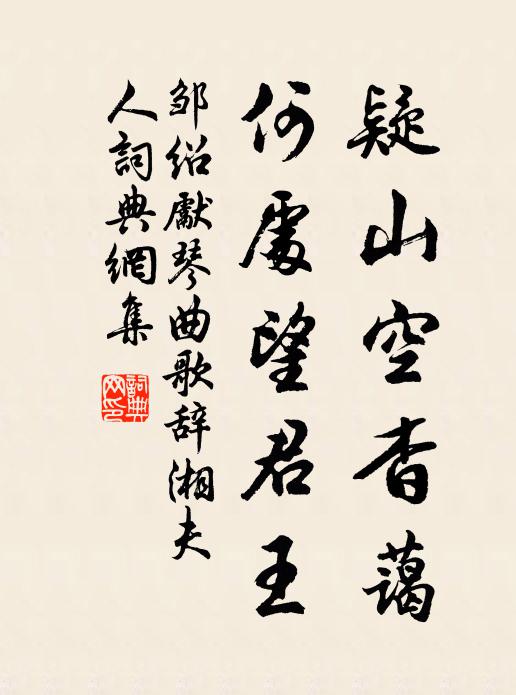 疑山空杳藹
何處望君王
邹绍獻琴曲歌辞湘夫
人詞典網集
詞典
网印